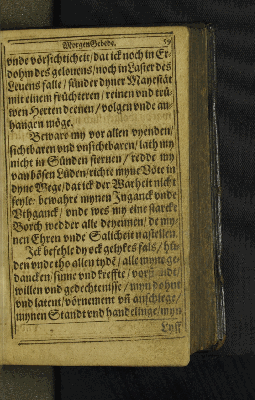 MorgenGebede. 59
vnde vörsichticheit / dat ick noch in Er-
dohm des gelouens / noch in Laster des
Leuens falle / sünder dyner Mayestät
mit einem früchteren / reinen vnd trü-
wen Herten deenen / volgen vnde an-
hangen möge.
Beware my vor allen vyenden /
sichtbaren vnd vnsichtbaren / lath my
nicht in Sünden steruen / redde my
van bösen Lüden / richte myne Vöte in
dyne Wege / dat ick der Warheit nicht
feyle / bewahre mynen Inganck vnde
Vthganck / vnde wes my eine starcke
Borch wedder alle de yennen / de my-
nen Ehren vnde Salicheit nastellen.
Ick befehle dy ock gelykes fals / hü-
den vnde tho allen tydē / alle myne ge-
dancken / sinne vnd kreffte /
willen vnd gedechtenisse / myn dohnt
vnd latent / vörnement vñ anschlege /
mynen Standt vnd handelinge / myn
Lyff